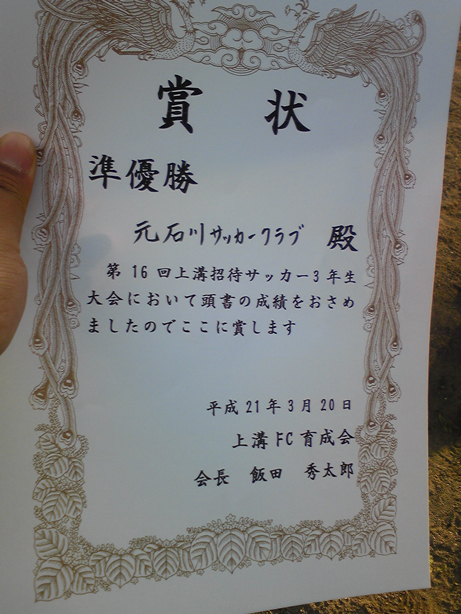 賞状
準優勝
元石川サッカークラブ 殿
第16回上溝招待サッカー3年生
大会において頭書の成績をおさめ
ましたのでここに賞します
平成21年3月20日
上溝FC育成会
会長 飯田 秀太郎